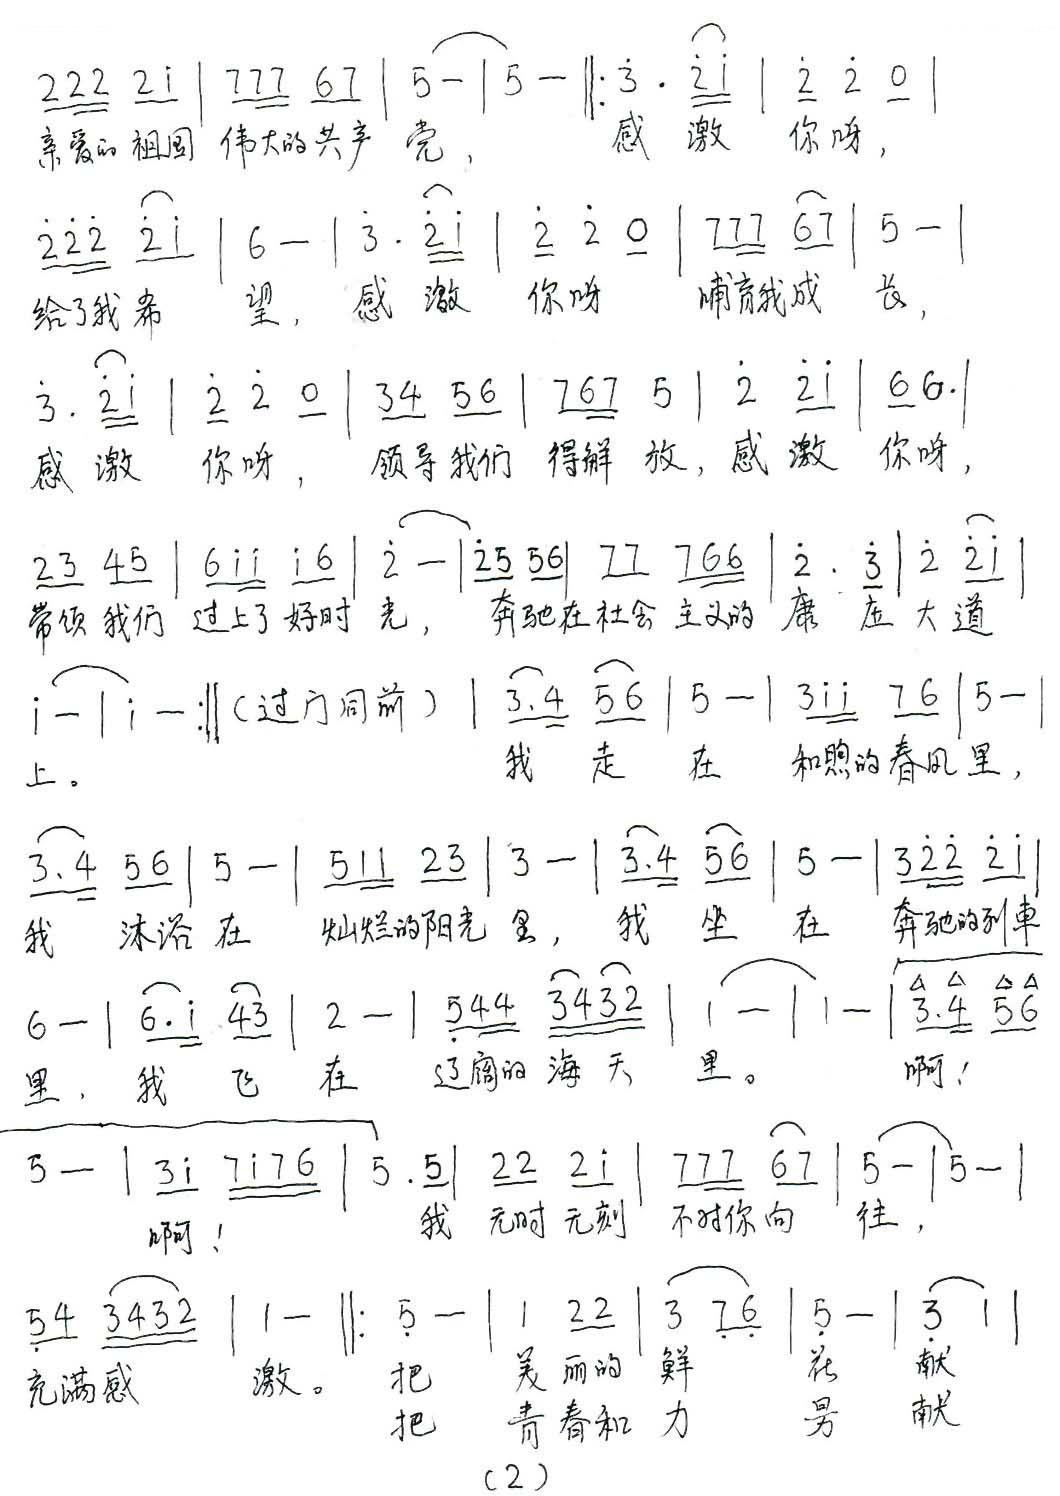 222 2i | 777 67 | 5 — | 5 — ‖: 3̇ · 2̇i | 2̇ 2̇ 0 |
亲爱的祖国 伟大的共产 党, 感 激 你呀,
2̇2̇2̇ 2̇i | 6 — | 3̇ · 2̇i | 2̇ 2̇ 0 | 777 67 | 5 — |
给了我希 望, 感 激 你呀 哺育我成 长,
3̇ · 2̇i | 2̇ 2̇ 0 | 34 56 | 767 5 | 2̇ 2̇i | 6 6· |
感 激 你呀, 领导我们 得解 放, 感 激 你呀,
23 45 | 6ii i6 | 2̇ — | 2̇5 56 | 77 766 | 2̇ · 3̇ | 2̇ 2̇i |
带领我们 过上了好时 光, 奔驰在社会 主义的 康 庄 大 道
i — | i — :‖ (过门同前) | 3·4 56 | 5 — | 3ii 76 | 5 — |
上。 我 走 在 和煦的春风里,
3·4 56 | 5 — | 511 23 | 3 — | 3·4 56 | 5 — | 32̇2̇ 2̇i |
我 沐浴在 灿烂的阳光 里, 我 坐 在 奔驰的列車
6 — | 6·i 43 | 2 — | 5̣44 3432 | 1 — | 1 — | 3·4 56
里, 我 飞 在 辽阔的 海 天 里。 啊!
5 — | 3i 7i76 | 5 · 5 | 22 2i | 777 67 | 5 — | 5 — |
啊! 我 无时无刻 不对你向 往,
5̣4 3432 | 1 — ‖: 5̣ — | 1 22 | 3 7̣6̣ | 5̣ — | 3 1 |
充满感 激。 把 美 丽的 鲜 花 献
把 青春和 力 男 献
(2)